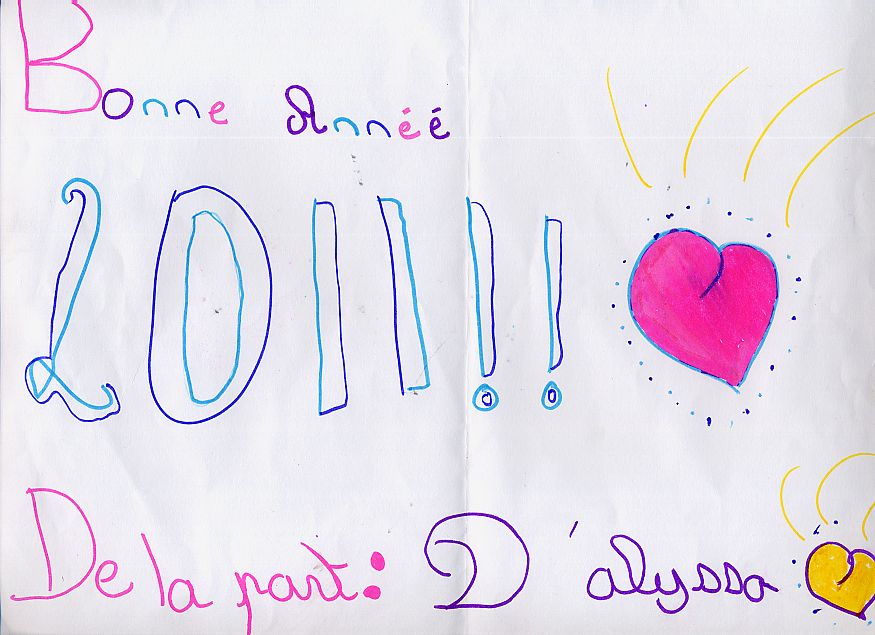 Bonne Annéé
2011!!
De la part: D'alyssa